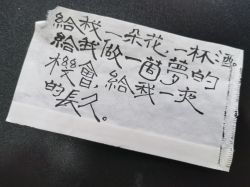 給我一朵花,一杯酒
給我做一個夢的
機會,給我一夜
的長久。